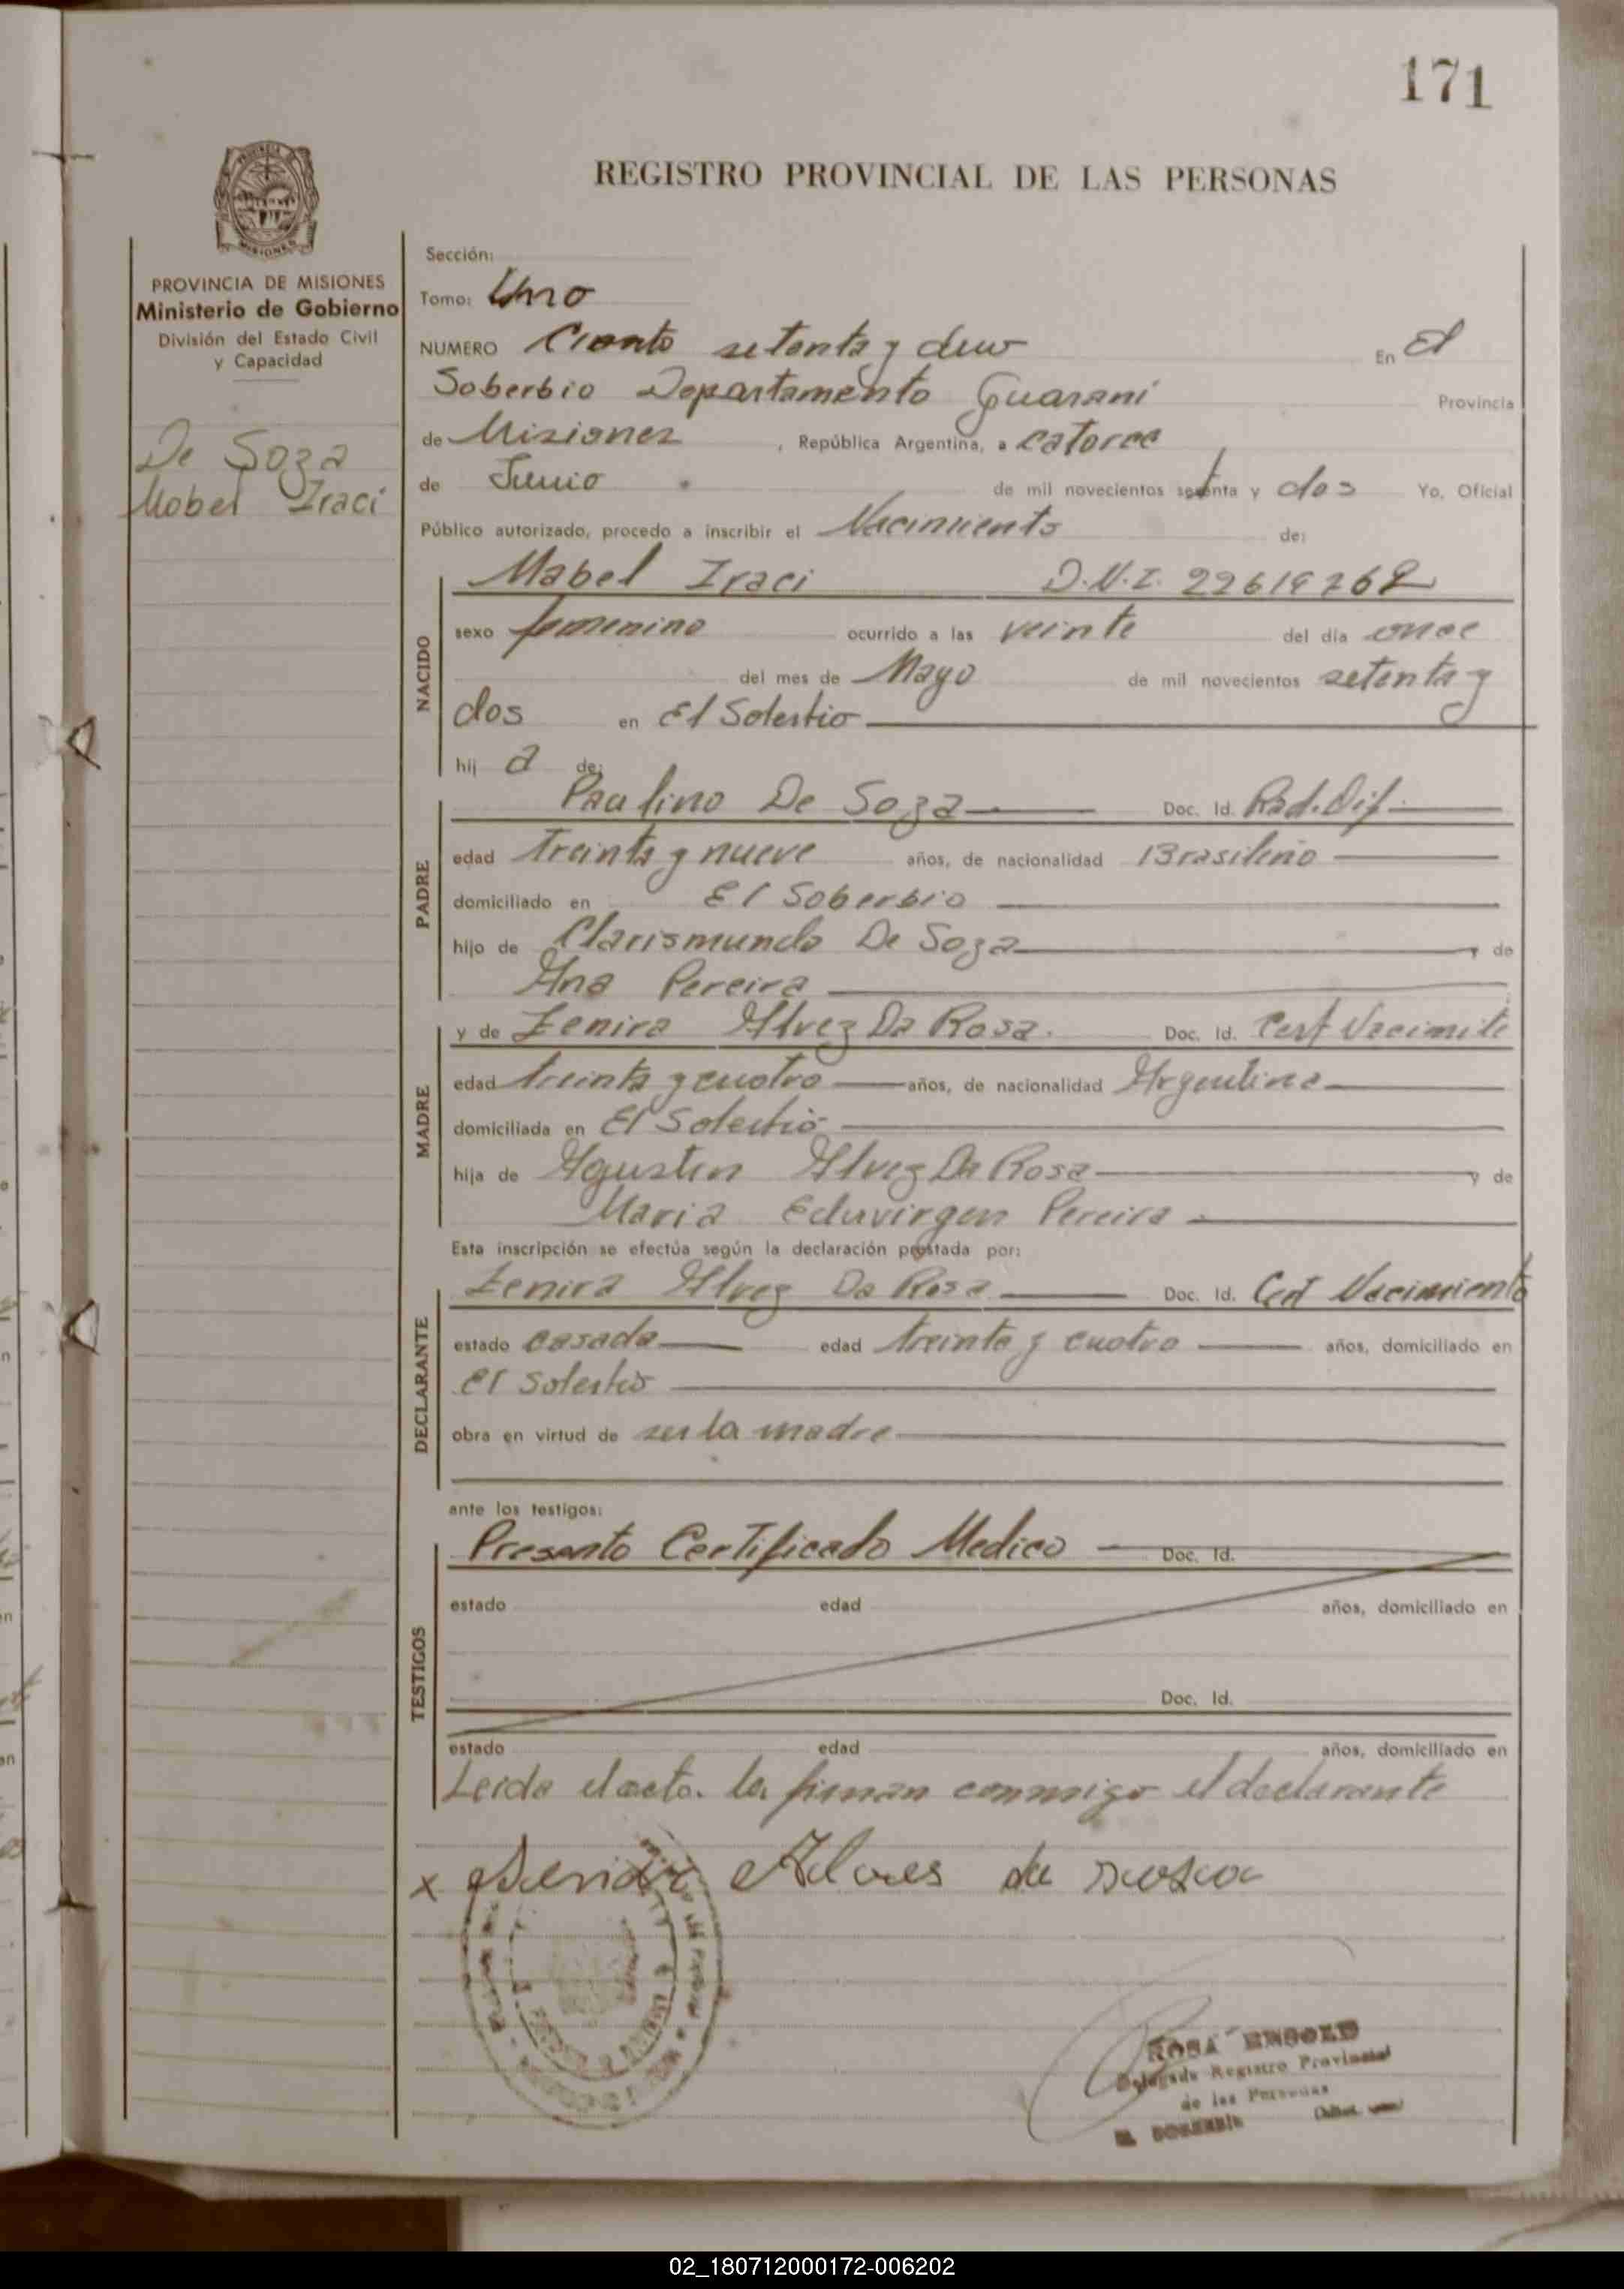 171
REGISTRO PROVINCIAL DE LAS PERSONAS
MISIONES
PROVINCIA DE MISIONES
Ministerio de Gobierno
División del Estado Civil
y Capacidad
De Soza
Mobel Iraci
Sección:
Tomo: Uno
NUMERO Ciento setenta y En El
Soberbio Departamento Guarani Provincia
de Misiones , República Argentina, a catorce
de Junio de mil novecientos setenta y dos Yo, Oficial
Público autorizado, procedo a inscribir el Nacimiento de:
NACIDO
Mabel Iraci D.N.I.
sexo femenino ocurrido a las veinte del día once
del mes de Mayo de mil novecientos setenta y
dos en El Soberbio
hij a de:
PADRE
Paulino De Soza Doc. Id. Rad. Dif.
edad treinta y nueve años, de nacionalidad Brasileño
domiciliado en El Soberbio
hijo de Clarismundo De Soza y de
Ana Pereira
MADRE
y de Zenira Alvez Da Rosa. Doc. Id. Cert Nacimite
edad treinta y cuatro años, de nacionalidad Argentina
domiciliada en El Soberbio
hija de Agustin Alvez Da Rosa y de
Maria Eduvirgen Pereira
Esta inscripción se efectúa según la declaración prestada por:
DECLARANTE
Zenira Alvez Da Rosa Doc. Id. Cert Nacimiento
estado casada edad treinta y cuatro años, domiciliado en
El Soberbio
obra en virtud de ser la madre
ante los testigos:
TESTIGOS
Presento Certificado Medico Doc. Id.
estado edad años, domiciliado en
Doc. Id.
estado edad años, domiciliado en
Leida el acta. la firman conmigo el declarante
x Alves da rosa
ROSA
Delegada Registro Provincial
de las Personas
EL SOBERBIO
02_180712000172-006202